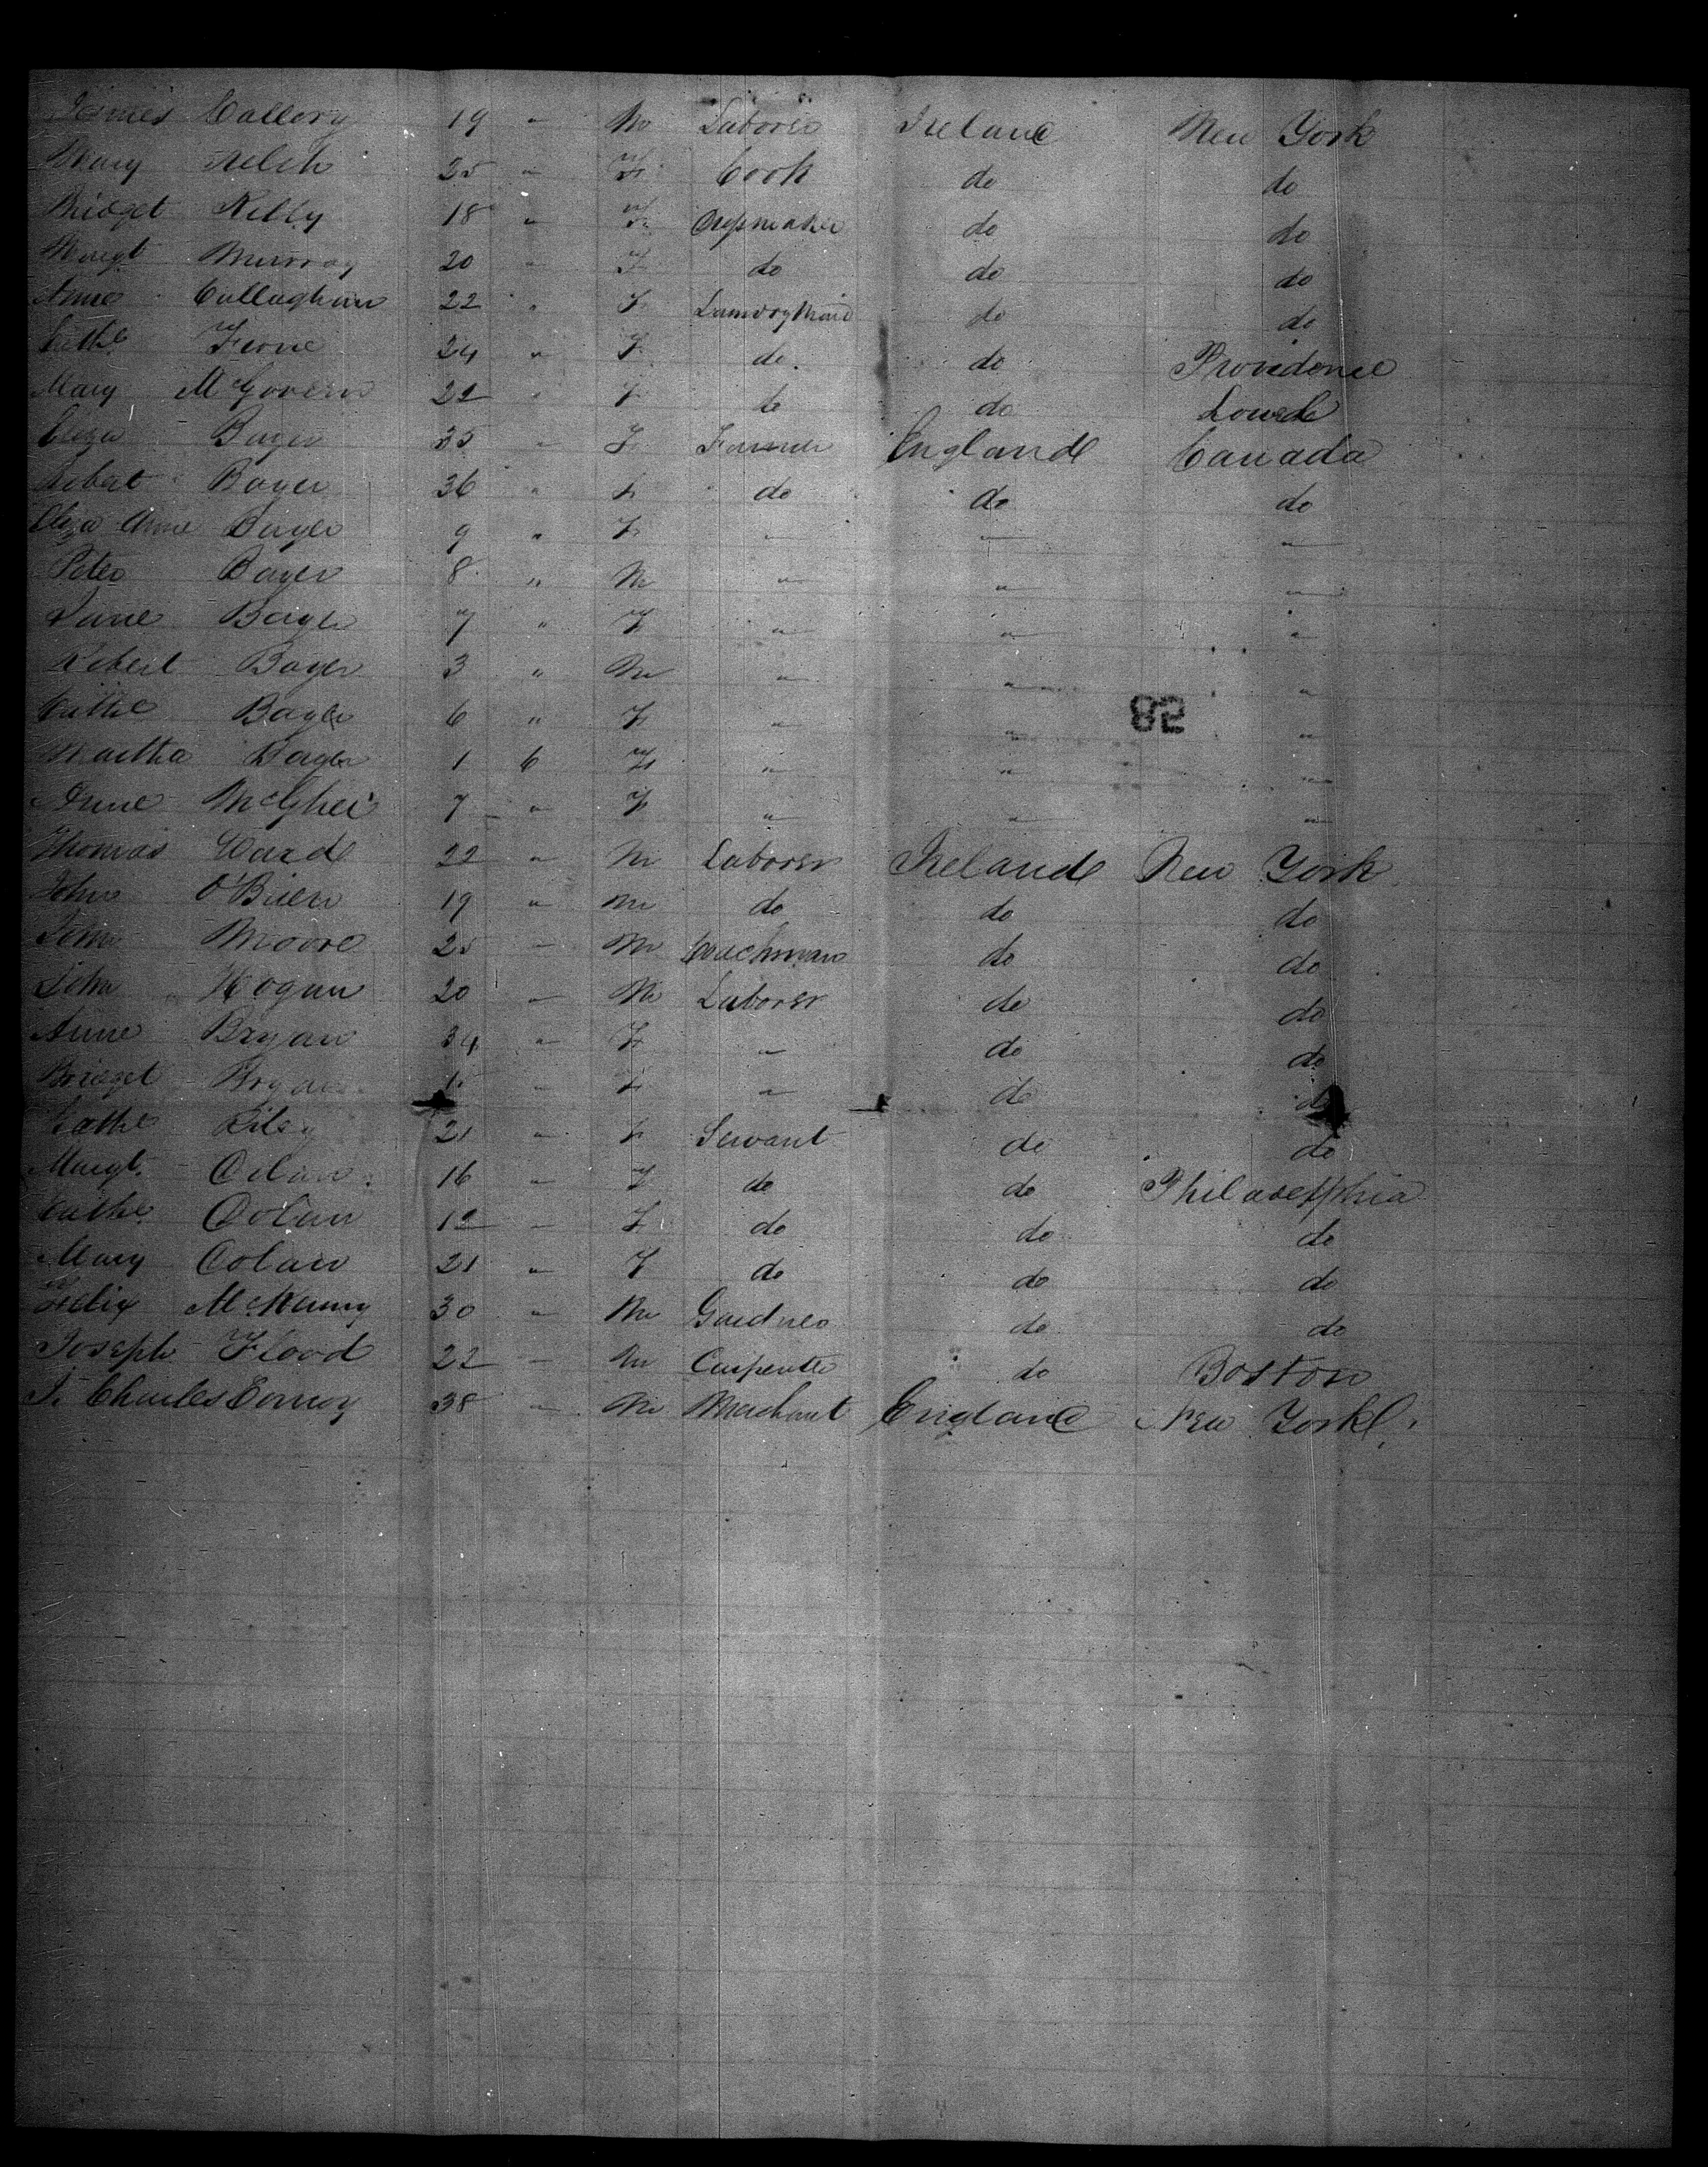 James Callery 19 " M Laborer Ireland New York
Mary Welch 25 " F Cook do do
Bridget Kelly 18 " F Dressmaker do do
Margt Murray 20 " F do do do
Anne Callaghan 22 " F LaundryMaid do do
Cathe 24 " F do. do Providence
Mary McGovern 22 " F do do Lowell
Eliza Boyer 35 " F Farmer England Canada
Robert Boyer 36 " do do do
Eliza Anne Boyer 9 " F " " "
Peter Boyer 8 " M " " "
Jane Boyer 7 " F " " "
Robert Boyer 3 " M " " "
82
Cathe Boyer 6 " F " " "
Martha Boyer 1 6 F " " "
Anne McGhee 7 " F " " "
Thomas Ward 22 " M Laborer Ireland New York
John O'Brien 19 " M do do do
John Moore 25 " M Coachman do do
John Hogan 20 " M Laborer do do
Anne Bryan 34 " F " do do
Bridget Bryan " F " do do
Cathe Riley 21 " F Servant do do
Margt. 16 " F do do Philadelphia
Cathe Dolan 12 " F do do do
Mary Dolan 21 " F do do do
Felix McKenny 30 " M Gardner do do
Joseph Flood 22 " M Carpenter do Boston
J. Charles Conroy 38 " M Merchant England New York